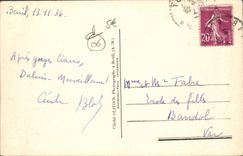 Beuil, 13.11.36
Après gorges Cians,
Daluis. Merveilleux
Cécile
Cliché OLIVIER, Photographe à Beuil (A.-M.)
20
et Mr Fabre
Ecole de filles
Bandol
Var